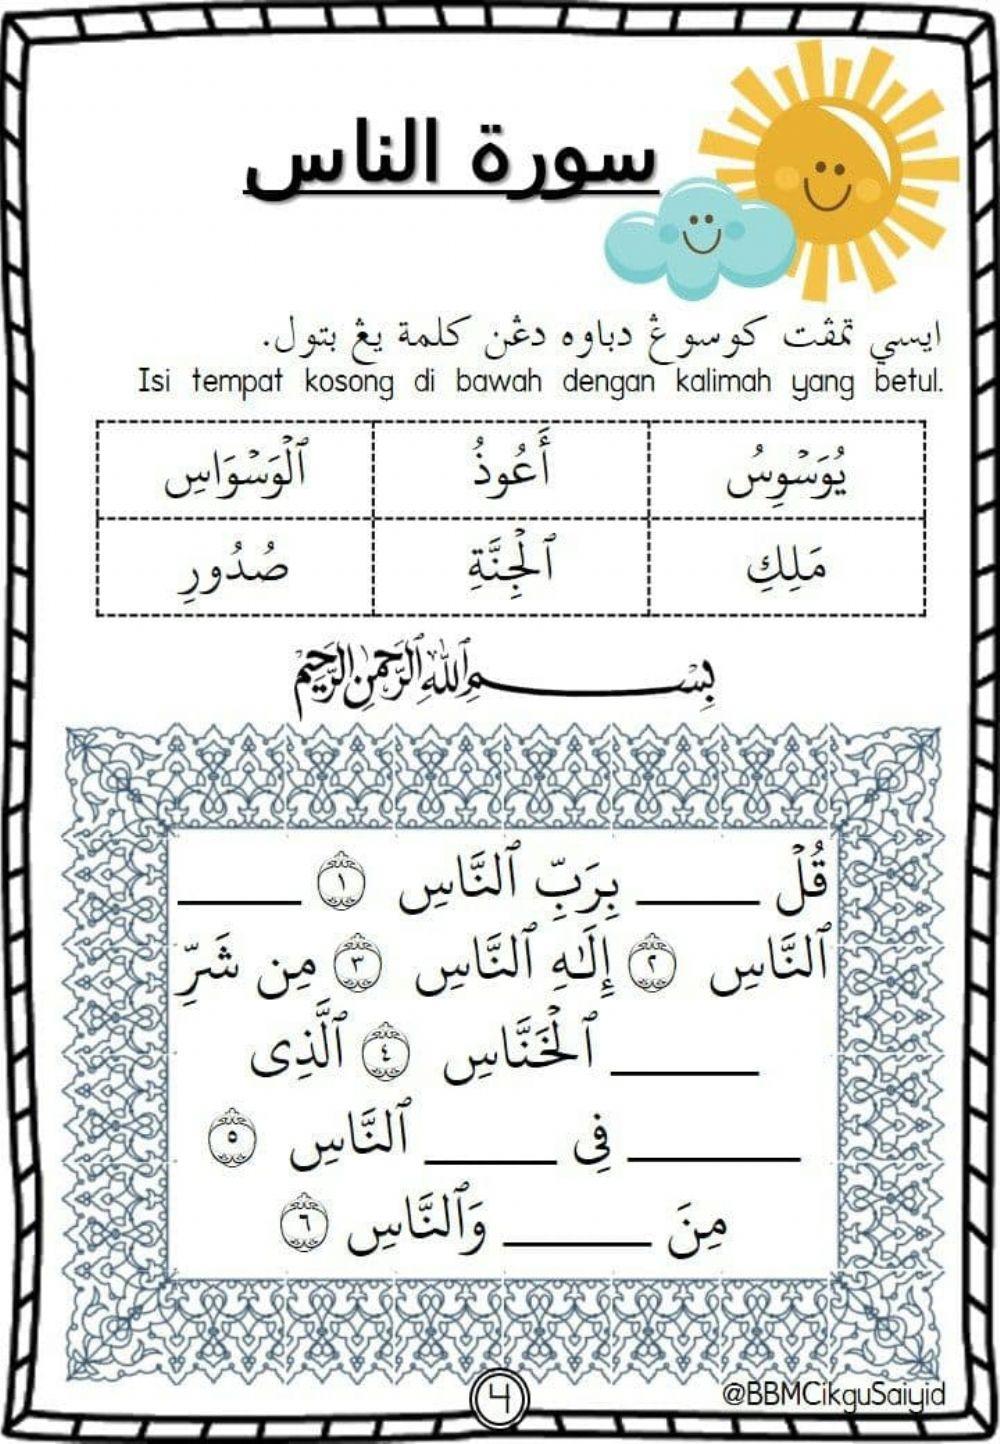 سورة الناس
ايسي تمڤت كوسوڠ دباوه دڠن كلمة يڠ بتول.
Isi tempat kosong di bawah dengan kalimah yang betul.
يُوَسْوِسُ أَعُوذُ ٱلْوَسْوَاسِ
مَلِكِ ٱلْجِنَّةِ صُدُورِ
بِسْمِ ٱللَّهِ ٱلرَّحْمَٰنِ ٱلرَّحِيمِ
قُلْ ______ بِرَبِّ ٱلنَّاسِ ١ ______
ٱلنَّاسِ ٢ إِلَـٰهِ ٱلنَّاسِ ٣ مِن شَرِّ
______ ٱلْخَنَّاسِ ٤ ٱلَّذِى
______ فِى ______ ٱلنَّاسِ ٥
مِنَ ______ وَٱلنَّاسِ ٦
4
@BBMCikguSaiyid